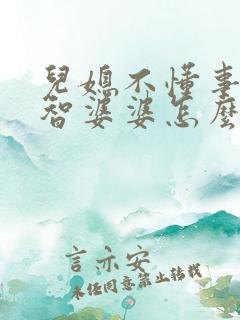 兒媳不懂事
智婆婆怎麼
言亦安
未經同意禁止轉載